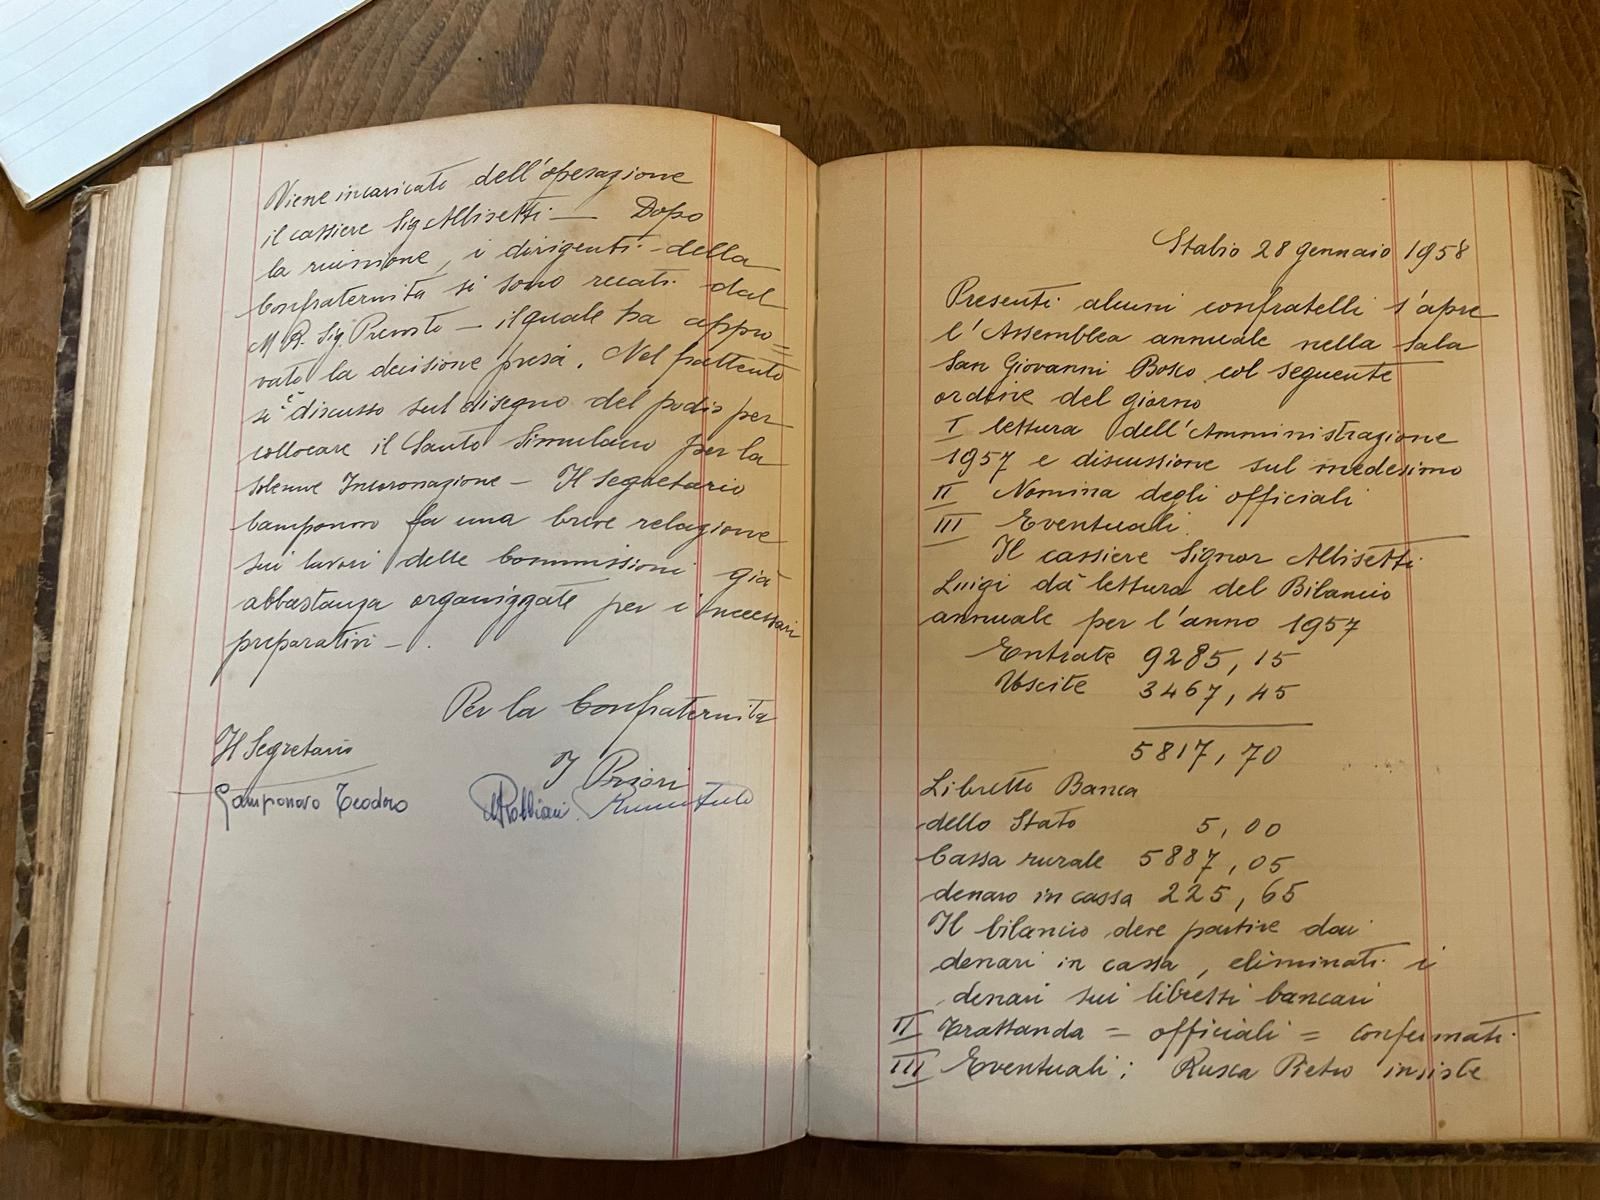 Viene incaricato dell'operazione
il cassiere Sig Albisetti — Dopo
la riunione, i dirigenti della
Confraternita si sono recati dal
M R. Sig Prevosto — il quale ha appro=
vato la decisione presa. Nel frattento
si è discusso sul disegno del podio per
collocare il Santo Simulacro per la
solenne Incoronazione — Il Segretario
Camponovo fa una breve relazione
sui lavori delle Commissioni già
abbastanza organizzate per i necessari
preparativi — .
Per la Confraternita
Il Segretario
I Priori
Camponovo Teodoro
Robbiani
Stabio 28 gennaio 1958
Presenti alcuni confratelli s'apre
l'Assemblea annuale nella sala
San Giovanni Bosco col seguente
ordine del giorno
I lettura dell'Amministrazione
1957 e discussione sul medesimo
II Nomina degli officiali
III Eventuali
Il cassiere Signor Albisetti
Luigi dà lettura del Bilancio
annuale per l'anno 1957
Entrate 9285,15
Uscite 3467,45
5817,70
Libretto Banca
dello Stato 5,00
Cassa rurale 5887,05
denaro in cassa 225,65
Il bilancio deve partire dai
denari in cassa, eliminati i
denari sui libretti bancari
II Trattanda = officiali = confermati
III Eventuali: Rusca Pietro insiste